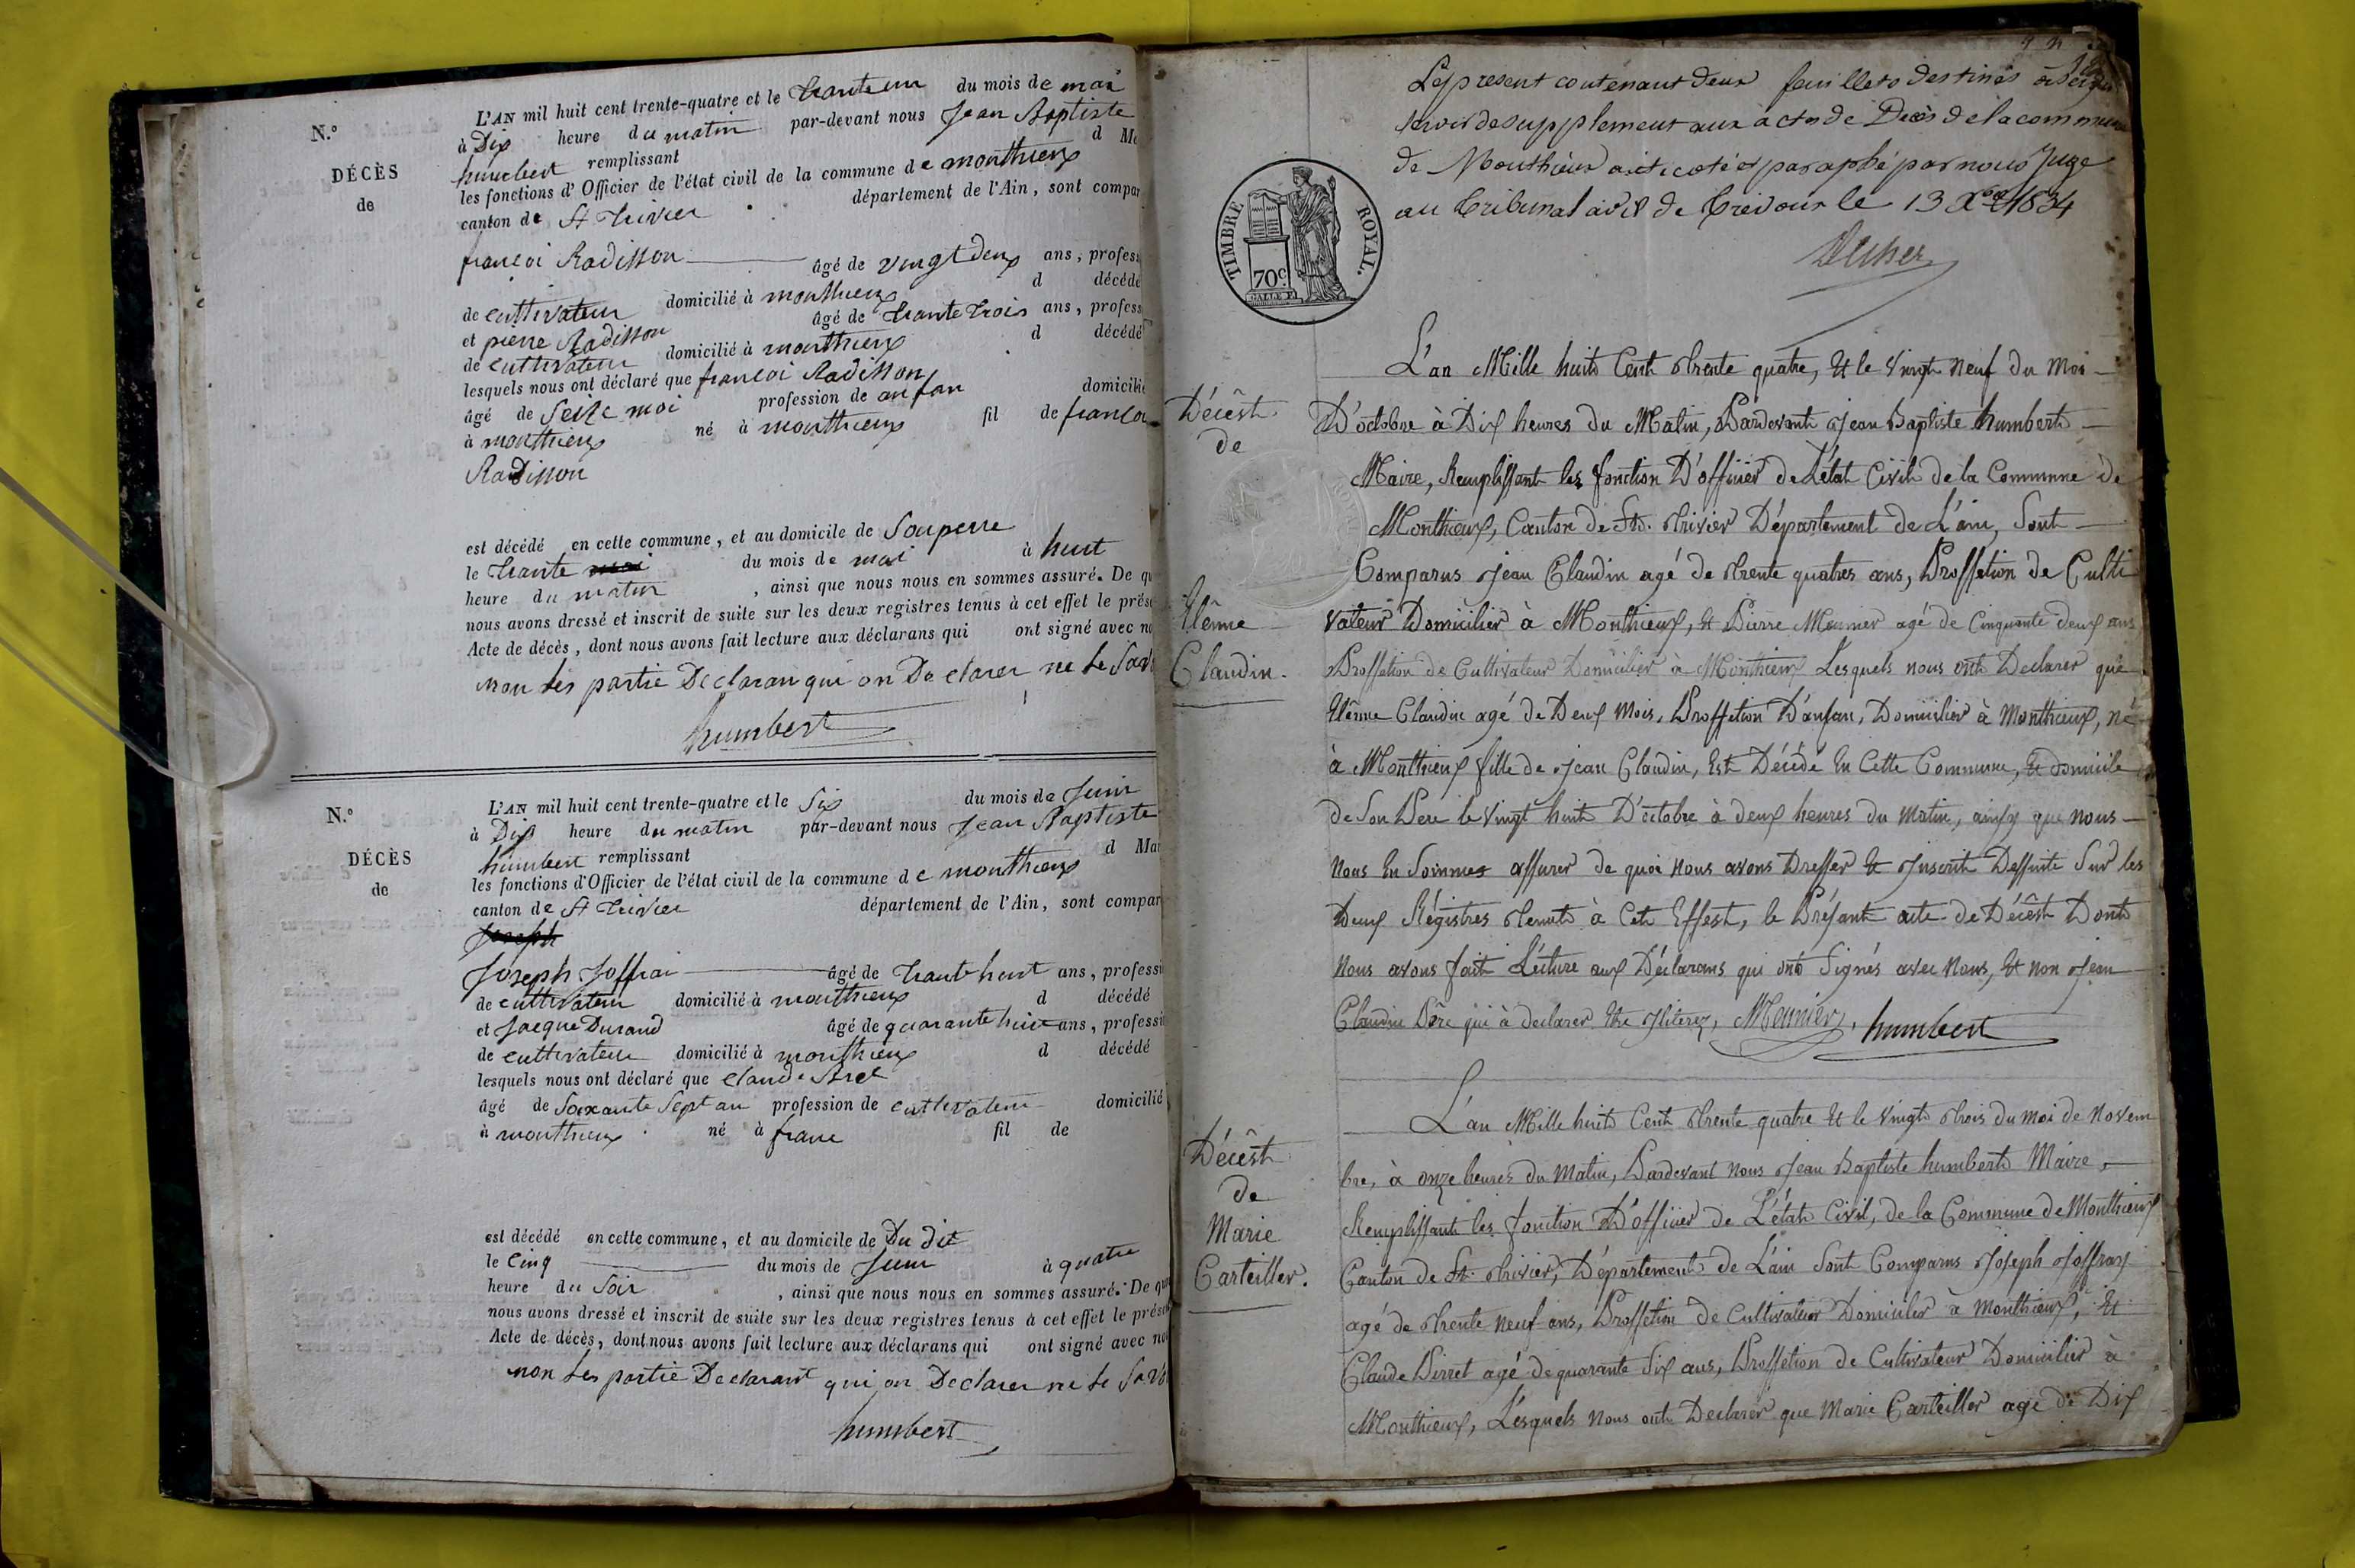 N.°
DÉCÈS
de
L'AN mil huit cent trente-quatre et le trante un du mois de mai
à Dix heure du matin par-devant nous Jean Baptiste
humbert remplissant d
les fonctions d'Officier de l'état civil de la commune de monthieux
canton de St trivier département de l'Ain, sont compar
francoi Radisson âgé de vingt deux ans, profess
de cultivateur domicilié à monthieux d décédé
et pierre Radisson âgé de trante trois ans, profess
de cultivateur domicilié à monthieux d décédé
lesquels nous ont déclaré que francoi Radisson
âgé de Seize moi profession de anfan domicilié
à monthieux né à monthieux fil de francoi
Radisson
est décédé en cette commune, et au domicile de Son perre
le trante du mois de mai à huit
heure du matin, ainsi que nous nous en sommes assuré. De qu
nous avons dressé et inscrit de suite sur les deux registres tenus à cet effet le prése
Acte de décès, dont nous avons fait lecture aux déclarans qui ont signé avec no
non les partie Declaran qui on Declarer ne le Savo
humbert
N.°
DÉCÈS
de
L'AN mil huit cent trente-quatre et le Six du mois de Juin
à Dix heure du matin par-devant nous Jean Baptiste
humbert remplissant d Mai
les fonctions d'Officier de l'état civil de la commune de monthieux
canton de St trivier département de l'Ain, sont compar
Joseph
Joseph Joffrai âgé de trante huit ans, professi
de cultivateur domicilié à monthieux d décédé
et Jacque Durand âgé de quarante huit ans, professi
de cultivateur domicilié à monthieux d décédé
lesquels nous ont déclaré que claude
âgé de Soixante Sept an profession de cultivateur domicilié
à monthieux né à franc fil de
est décédé en cette commune, et au domicile de Du dit
le Cinq du mois de Juin à quatre
heure du Soir, ainsi que nous nous en sommes assuré. De qu
nous avons dressé et inscrit de suite sur les deux registres tenus à cet effet le prése
Acte de décès, dont nous avons fait lecture aux déclarans qui ont signé avec no
non les partie Declarant qui on Declarer ne le Savo
humbert
Le present contenant deux feuillets destinés à
servir de supplement aux actes de Decès de la commune
de Monthieux a été coté et paraphé par nous Juge
au tribunal civil de trevoux le 13 Xbre 1834
TIMBRE ROYAL.
70c
L'an Mille huit Cent trente quatre, Et le Vingt Neuf du Moi
Décêst
de
Elênne
Claudin.
D'octobre à Dix heures du Matin, Pardevant Jean Baptiste humbert
Maire, Remplissant les fonction D'officier de L'état Civil de la Commune de
Monthieux, Canton de St. trivier Département de L'ain, Sont
Comparus Jean Claudin agé de trente quatres ans, Proffetion de Culti
vateur Domicilier à Monthieux, Et Pierre Meunier agé de Cinquante deux ans
Proffetion de Cultivateur Domicilier à Monthieux Lesquels nous ont Declarer que
Elênne Claudin agé de Deux Mois, Proffetion D'anfan, Domicilier à Monthieux, né
à Monthieux fille de Jean Claudin, Est Décédé En Cette Commune, Et domicile
de Son Pere le Vingt huit D'octobre à deux heures du Matin, ainsy que nous
nous En Sommes assurer de quoi nous avons Dresser Et Inscrit Dessuite Sur les
Deux Régistres tenuts à Cet Effest, le Présant acte de Décêst Dont
Nous avons fait Lécture aux Déclarans qui ont Signés avec Nous, Et non Jean
Claudin Père qui à declarer Etre Iliterez, Meunier, humbert
L'an Mille huit Cent trente quatre Et le Vingt trois du moi de Novem
Décêst
de
Marie
Carteiller.
bre, à onze heures du Matin, Pardevant Nous Jean Baptiste humbert Maire,
Remplissant les fonction D'officier de L'état Civil, de la Commune de Monthieux
Canton de St. trivier, Département de L'ain Sont Comparus Joseph Joffray
agé de trente neuf ans, Proffetion de Cultivateur Domicilier à Monthieux, Et
Claude Pirret agé de quarante Six ans, Proffetion de Cultivateur Domicilier à
Monthieux, Lesquels Nous ont Declarer que Marie Carteiller agé de Dix